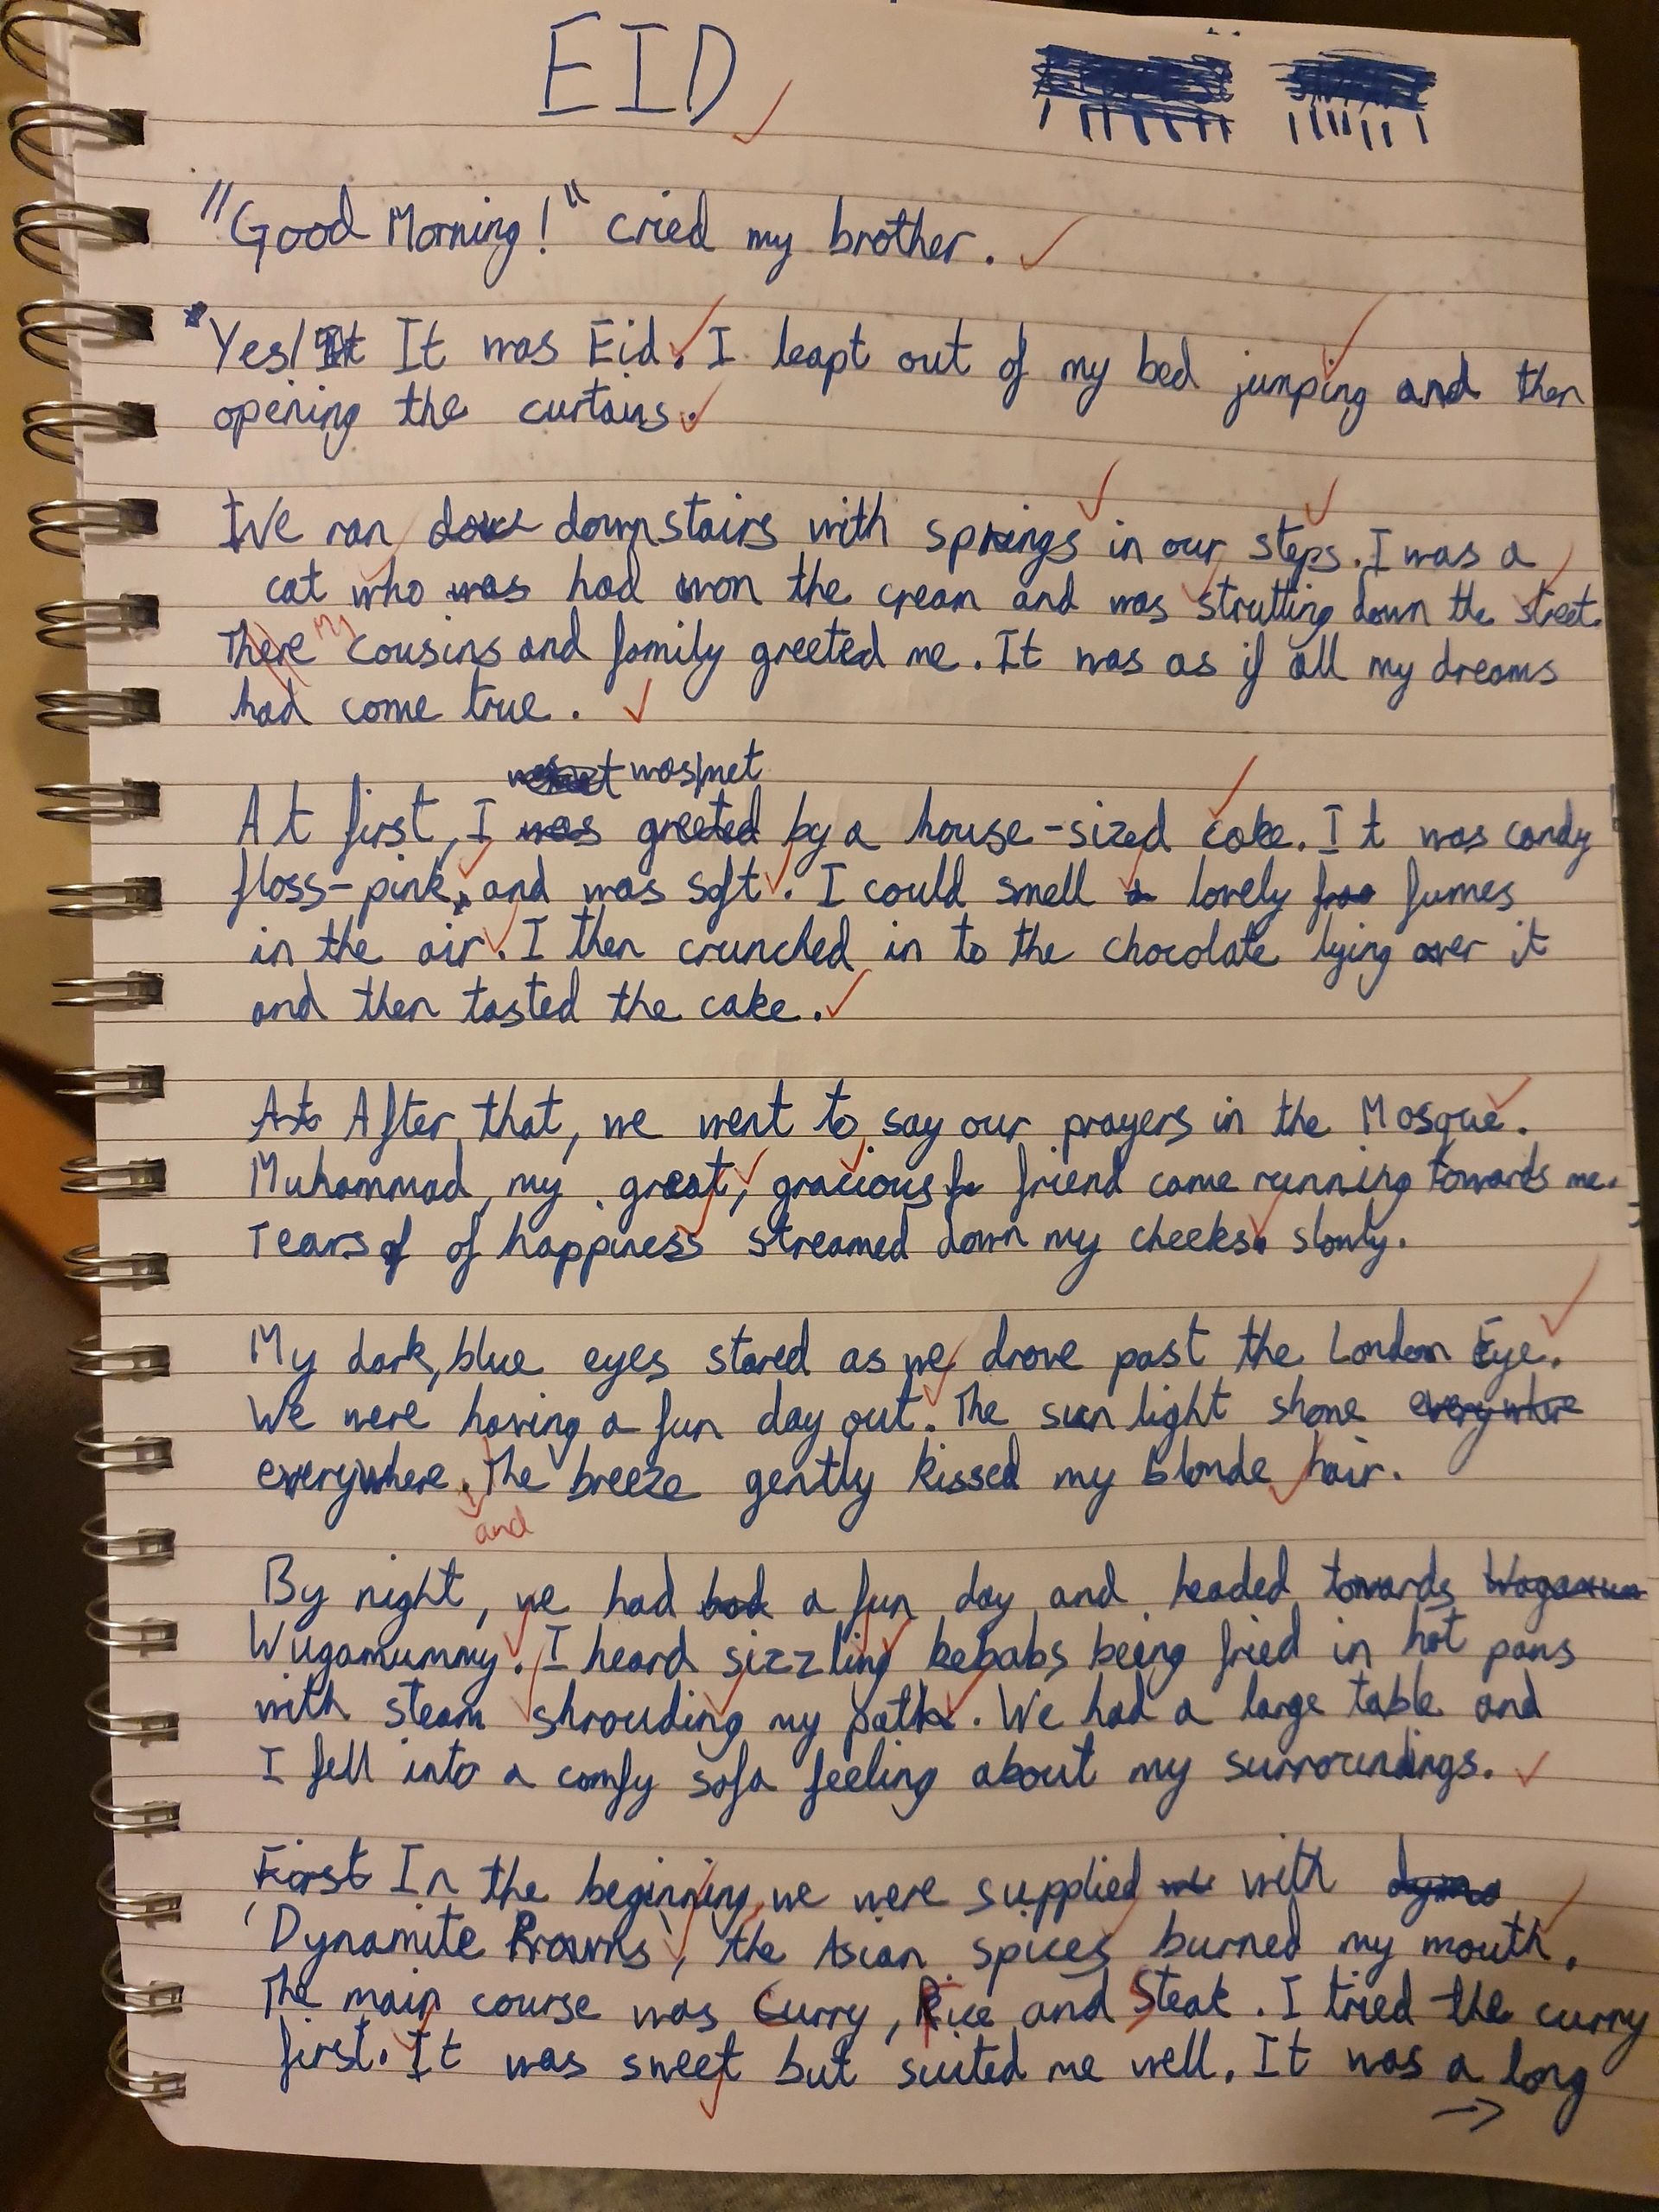 EID
"Good Morning!" cried my brother.
Yes! It was Eid. I leapt out of my bed jumping and then
opening the curtains.
We ran downstairs with springs in our steps. I was a
cat who was had won the cream and was strutting down the street.
There My cousins and family greeted me. It was as if all my dreams
had come true.
was met
At first, I was greeted by a house-sized cake. It was candy
floss-pink, and was soft. I could smell a lovely fumes
in the air. I then crunched in to the chocolate lying over it
and then tasted the cake.
At After that, we went to say our prayers in the Mosque.
Muhammad, my great, gracious friend came running towards me.
Tears of of happiness streamed down my cheeks slowly.
My dark, blue eyes stared as we drove past the London Eye.
We were having a fun day out. The sun light shone everywhere
everywhere. The breeze gently kissed my blonde hair.
and
By night, we had had a fun day and headed towards Wagamum
Wugamummy. I heard sizzling kebabs being fried in hot pans
with steam shrouding my path. We had a large table and
I fell into a comfy sofa feeling about my surroundings.
First In the beginning, we were supplied with
'Dynamite Prawns', the Asian spices burned my mouth.
The main course was Curry, Rice and Steak. I tried the curry
first. It was sweet but suited me well. It was a long
→